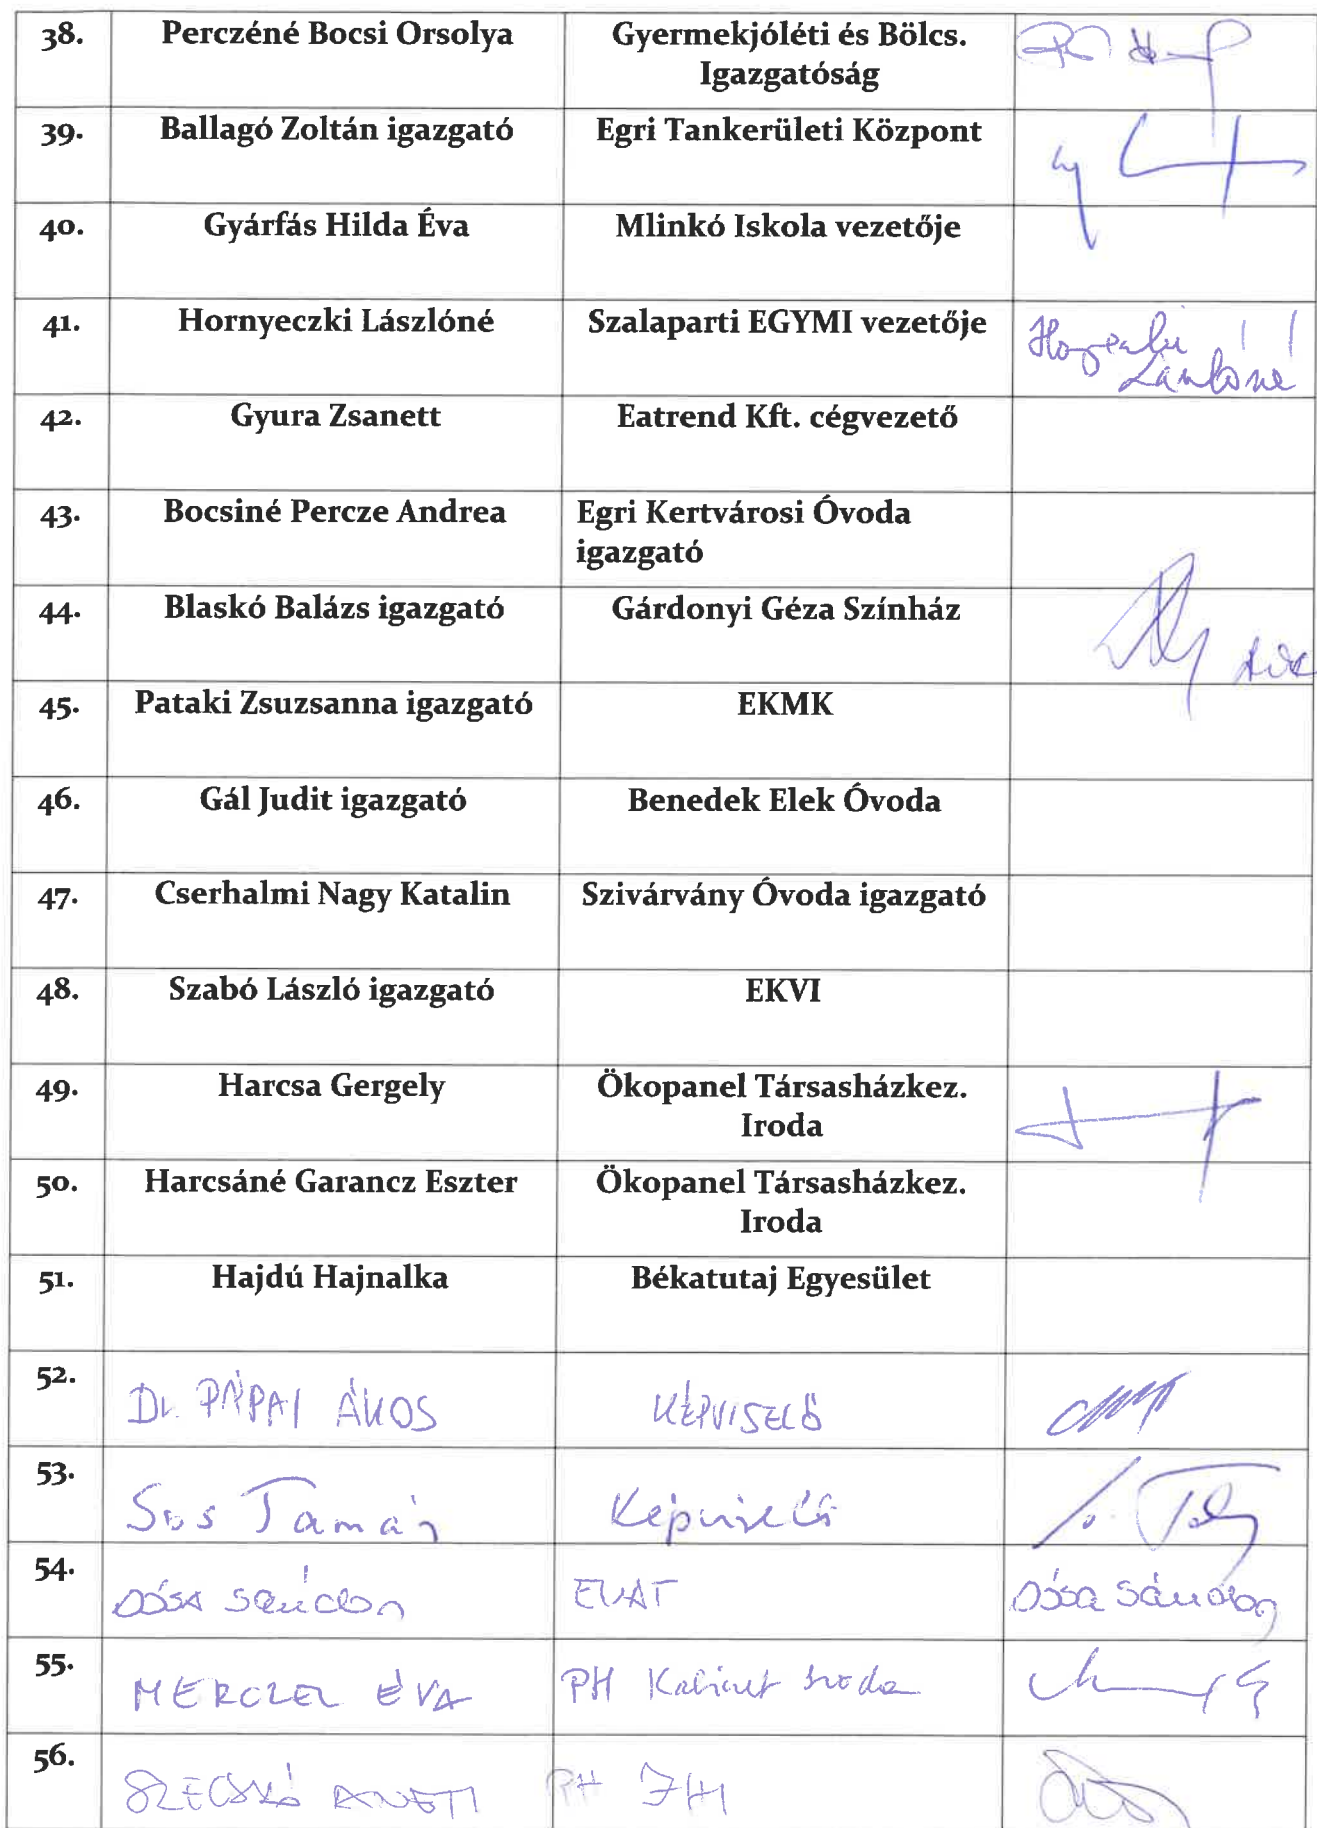 38. Perczéné Bocsi Orsolya Gyermekjóléti és Bölcs.
Igazgatóság
39. Ballagó Zoltán igazgató Egri Tankerületi Központ
40. Gyárfás Hilda Éva Mlinkó Iskola vezetője
41. Hornyeczki Lászlóné Szalaparti EGYMI vezetője
42. Gyura Zsanett Eatrend Kft. cégvezető
43. Bocsiné Percze Andrea Egri Kertvárosi Óvoda
igazgató
44. Blaskó Balázs igazgató Gárdonyi Géza Színház
45. Pataki Zsuzsanna igazgató EKMK
46. Gál Judit igazgató Benedek Elek Óvoda
47. Cserhalmi Nagy Katalin Szivárvány Óvoda igazgató
48. Szabó László igazgató EKVI
49. Harcsa Gergely Ökopanel Társasházkez.
Iroda
50. Harcsáné Garancz Eszter Ökopanel Társasházkez.
Iroda
51. Hajdú Hajnalka Békatutaj Egyesület
52. Dr. PÁPAI ÁKOS KÉPVISELŐ
53. Sós Tamás Képviselő
54. Dósa Sándor EVAT Dósa Sándor
55. MERCZEL ÉVA PH Kabinet Iroda
56. SZECSKÓ ANETT PH